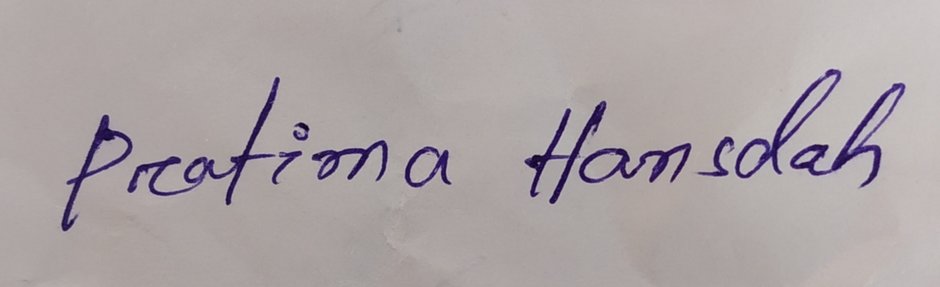 Pratima Hansdah